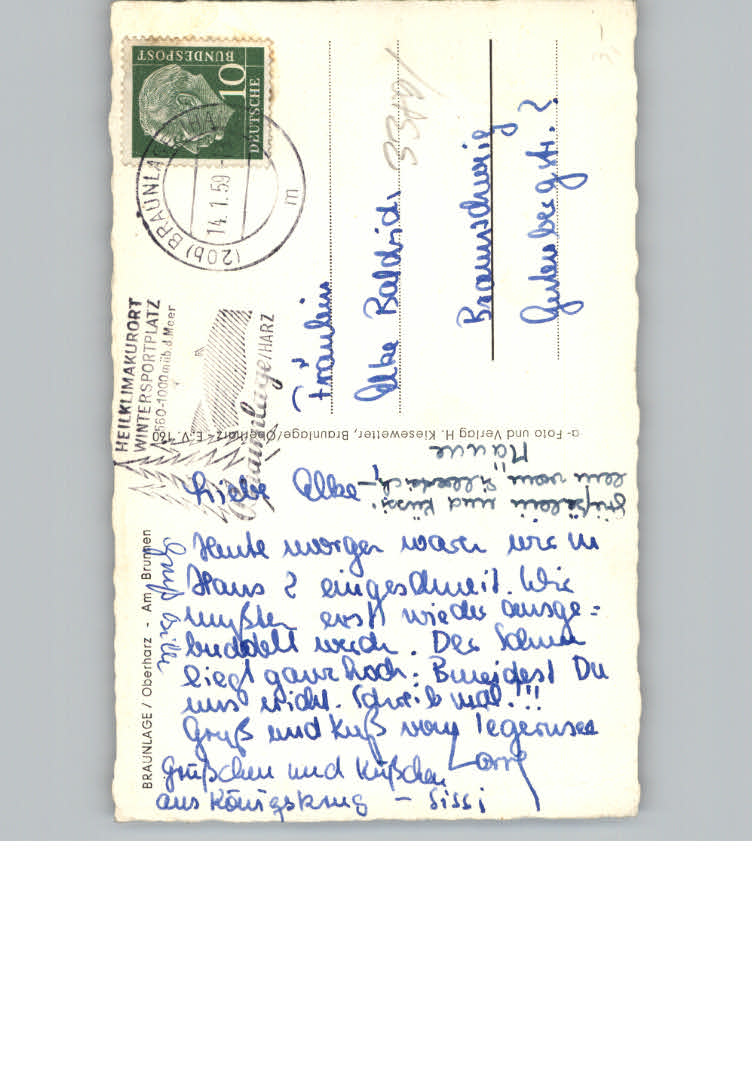 DEUTSCHE
BUNDESPOST
10
(20b) BRAUNLAGE
14.1.59
m
HEILKLIMAKURORT
WINTERSPORTPLATZ
560-1000m üb.d.Meer
Braunlage/HARZ
Fräulein
Elke
Braunschweig
Gutenbergstr. 2
a- Foto und Verlag H. Kiesewetter, Braunlage/Oberharz - E. V. 160
BRAUNLAGE / Oberharz - Am Brunnen
Liebe Elke
Heute morgen waren wir in
Haus 2 eingeschneit. Wir
mußten erst wieder ausge=
buddelt werden. Der Schnee
liegt ganz hoch. Beneidest Du
uns nicht. Schreib mal!!!
Gruß und Kuß vom Tegernsee
Grüßchen und Küßchen
aus Königskrug - Sissi
Grüßelein und Küssi
lein vom
Gruß